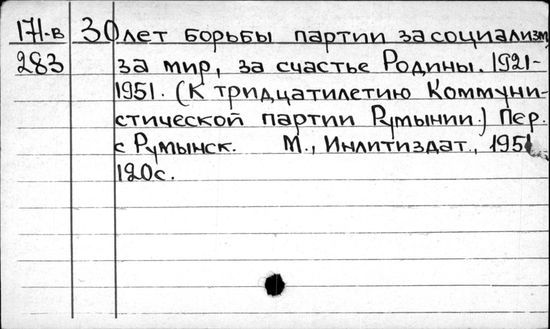 171-в 30 лет борьбы партии за социализм,
283 за мир, за счастье Родины. 1921-
1951. (К тридцатилетию Коммуни-
стической партии Румынии.) Пер.
с Румынск. М., Инлитиздат., 1951
120с.